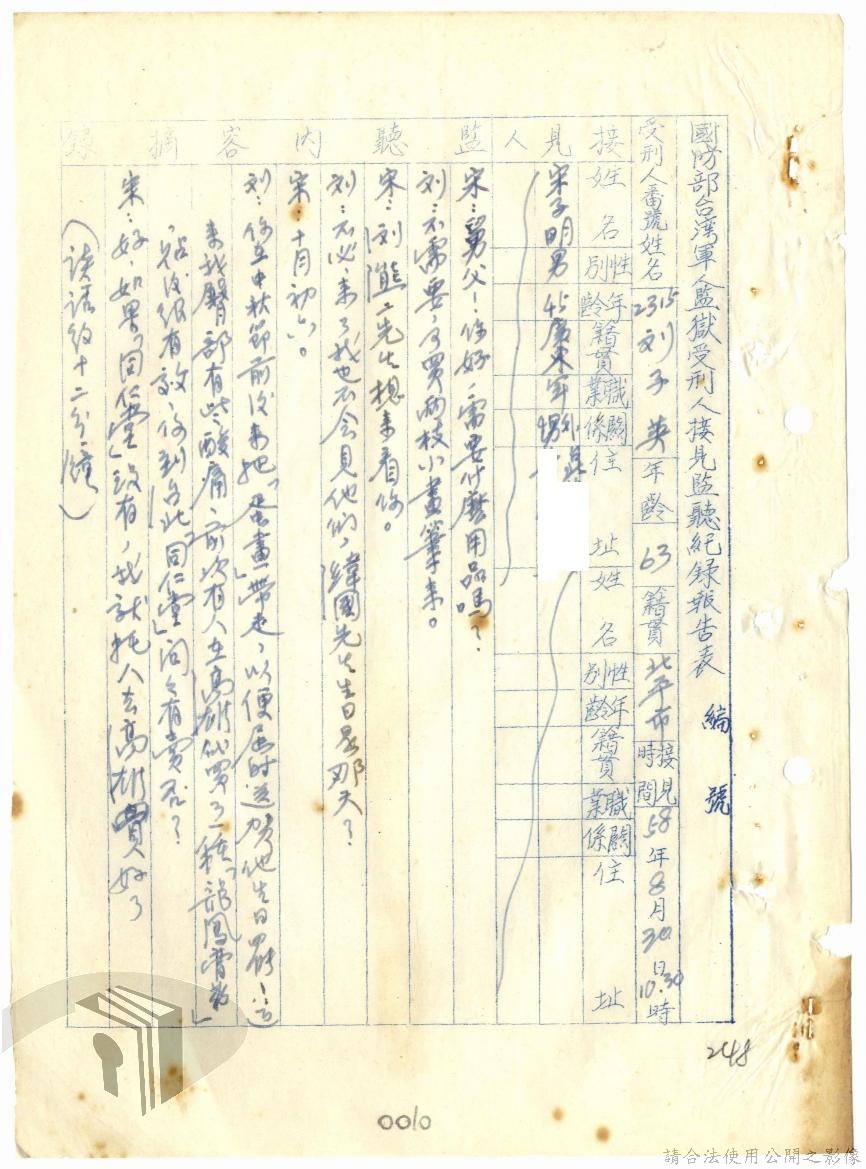 國防部台灣軍人監獄受刑人接見監聽紀錄報告表 編號
受刑人番號姓名 2315 刘子英 年齡 63 籍貫 北平市 接見時間 58年8月30日10.30時
接見人 姓名 性別 年齡 籍貫 職業 關係 住址 姓名 性別 年齡 籍貫 職業 關係 住址
宋子明 男 45 廣東 軍 甥
監聽內容摘錄
宋：舅父！你好，需要什麼用品嗎？
刘：不需要，可買兩枝小畫筆來。
宋：刘 先生想來看你。
刘：不必，來了我也不会見他們，緯國先生生日是那天？
宋：十月初六。
刘：你在中秋節前後來把「 畫」帶走，以便屆時送賀他生日 ！
來我臀部有些酸痛，前次有人在高雄代買了一種「龍鳳膏藥」
，貼後很有效，你到台北「同仁堂」問々有賣否？
宋：好，如果「同仁堂」沒有，我就托人去高雄買好了
（談話約十二分鐘）
248
0010
請合法使用公開之影像